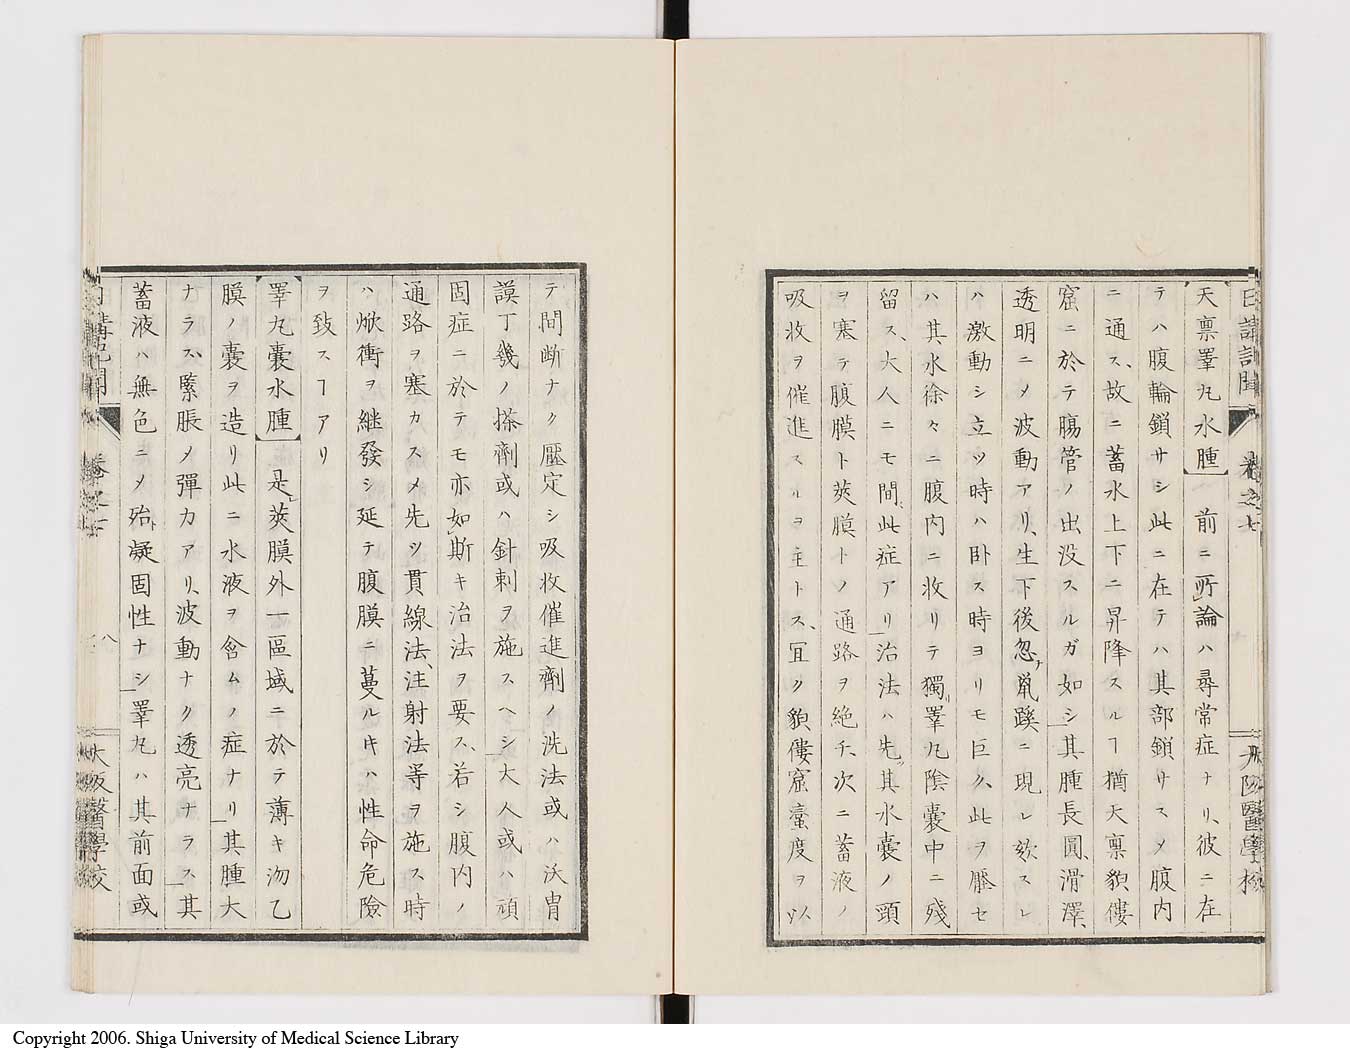 日講記聞 卷之七 大阪醫學校
天禀睪丸水腫 前ニ所論ハ尋常症ナリ、彼ニ在
テハ腹輪鎖サシ此ニ在テハ其部鎖サスメ腹内
ニ通ス、故ニ蓄水上下ニ昇降スルヿ猶天禀貌僂
窟ニ於テ腸管ノ出没スルガ如シ其腫長圓、滑澤、
透明ニメ波動アリ、生下後忽ナ鼠蹊ニ現レ欬スレ
ハ激動シ立ツ時ハ卧ス時ヨリモ巨ク、此ヲ壓セ
ハ其水徐々ニ腹内ニ收リテ獨リ睪丸陰嚢中ニ殘
留ス、大人ニモ間此症アリ治法ハ先其水嚢ノ頸
ヲ塞テ腹膜ト莢膜トノ通路ヲ絶チ、次ニ蓄液ノ
吸收ヲ催進スルヲ主トス、冝ク貌僂窟䘍度ヲ以
テ間断ナク壓定シ吸收催進劑ノ洗法或ハ沃胄
謨丁幾ノ搽劑或ハ針刺ヲ施スヘシ大人或ハ頑
固症ニ於テモ亦如斯キ治法ヲ要ス、若シ腹内ノ
通路ヲ塞カスメ先ツ貫線法、注射法等ヲ施ス時
ハ焮衝ヲ継發シ延テ腹膜ニ蔓ルキハ性命危險
ヲ致スヿアリ
睪丸嚢水腫 是莢膜外一區域ニ於テ薄キ沕乙
膜ノ嚢ヲ造リ此ニ水液ヲ含ムノ症ナリ其腫大
ナラス、緊脹ノ彈力アリ、波動ナク透亮ナラス其
蓄液ハ無色ニメ殆凝固性ナシ睪丸ハ其前面或
日講記聞 卷之七 八 大阪醫學校
Copyright 2006. Shiga University of Medical Science Library